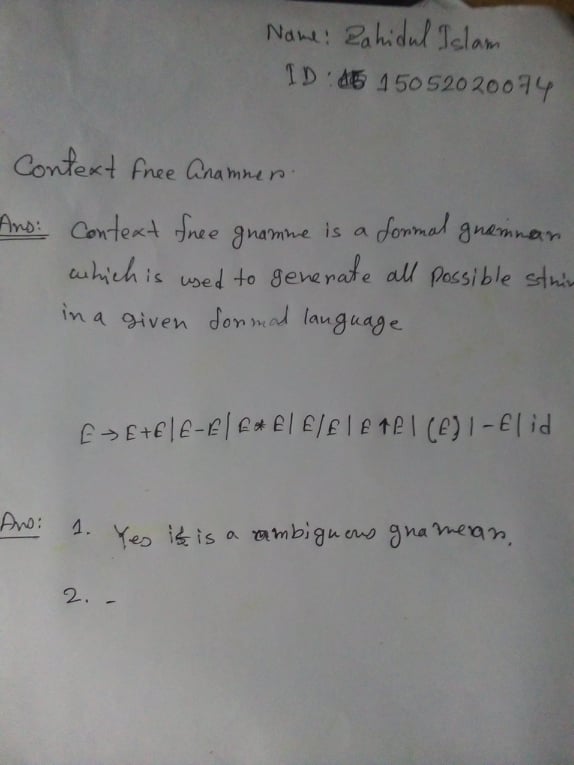 Name: Zahidul Islam
ID: 15052020074
Context free Gnamner.
Ans: Context free gnamne is a formal gnemnan
which is used to generate all possible strin
in a given formal language
E → E+E | E-E | E * E | E/E | E ↑ E | (E) | -E | id
Ans: 1. Yes it is a ambiguous gnamean.
2. -